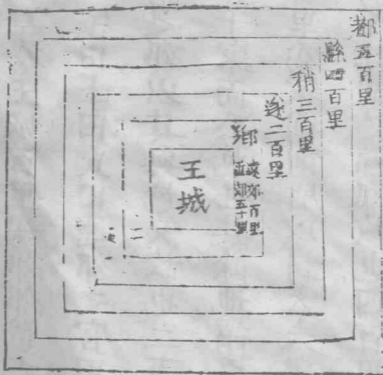 都五百里
縣四百里
稍三百里
遂二百里
鄉
遠郊百里
近郊五十里
王城